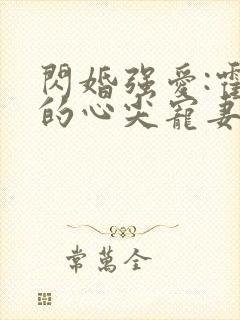 閃婚強愛:霍
的心尖寵妻
常萬全